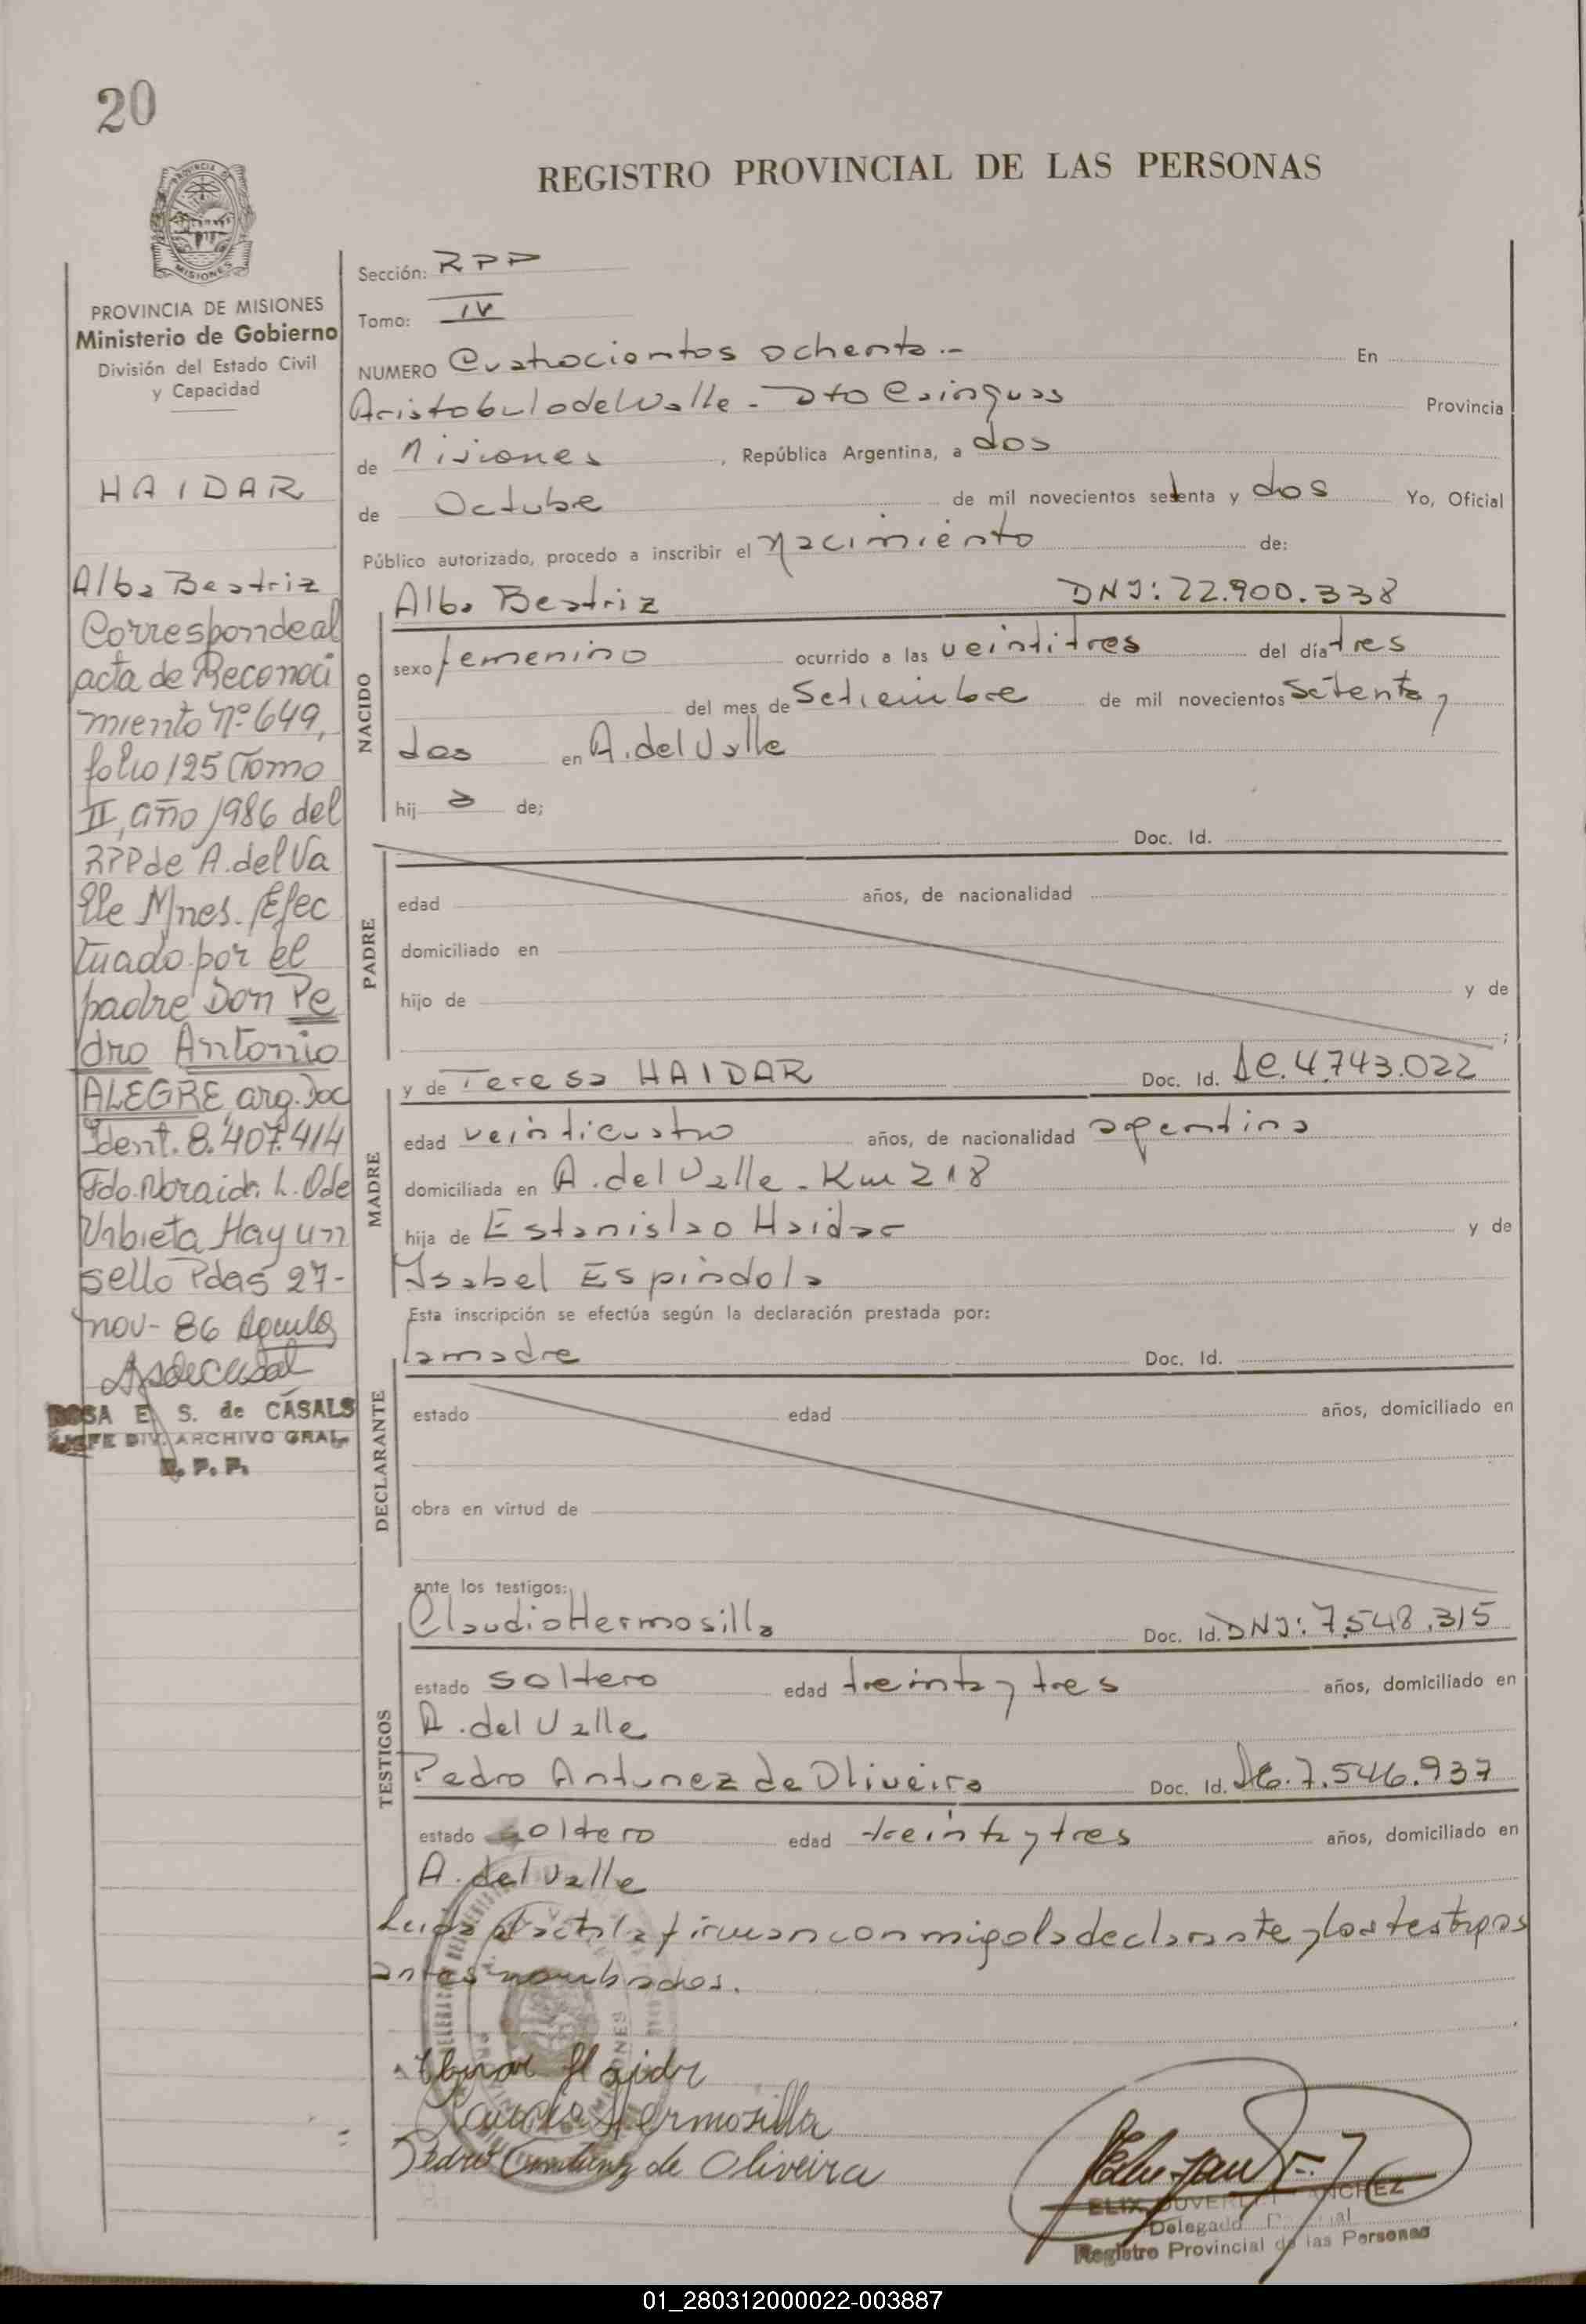 20
REGISTRO PROVINCIAL DE LAS PERSONAS
MISIONES
PROVINCIA DE MISIONES
Ministerio de Gobierno
División del Estado Civil
y Capacidad
HAIDAR
Alba Beatriz
Corresponde al
acta de Reconoci
miento Nº 649,
folio 125 Tomo
II, año 1986 del
RPP de A. del Va
lle Mnes. Efec
tuado por el
padre Don Pe
dro Antonio
ALEGRE, arg. Doc
Ident. 8.407.414
Fdo. L. O de
Urbieta Hay un
sello Pdas 27-
nov- 86
ROSA E. S. de CASALS
JEFE DIV. ARCHIVO GRAL.
R. P. P.
Sección: RPP
Tomo: IV
NUMERO Cuatrocientos ochenta.- En
Aristobulo del Valle - Dto Cainguas Provincia
de Misiones, República Argentina, a dos
de Octubre de mil novecientos setenta y dos Yo, Oficial
Público autorizado, procedo a inscribir el Nacimiento de:
NACIDO
Alba Beatriz DNI: 22.900.338
sexo femenino ocurrido a las veintitres del día tres
del mes de Setiembre de mil novecientos Setenta y
dos en A. del Valle
hij a de;
PADRE
Doc. Id.
edad años, de nacionalidad
domiciliado en
hijo de y de
;
MADRE
y de Teresa HAIDAR Doc. Id. Lc. 4.743.022
edad veinticuatro años, de nacionalidad argentina
domiciliada en A. del Valle - Km 218
hija de Estanislao Haidar y de
Isabel Espindola
Esta inscripción se efectúa según la declaración prestada por:
DECLARANTE
la madre Doc. Id.
estado edad años, domiciliado en
obra en virtud de
ante los testigos:
TESTIGOS
Claudio Hermosilla Doc. Id. DNI: 7.548.315
estado soltero edad treinta y tres años, domiciliado en
A. del Valle
Pedro Antunez de Oliveira Doc. Id. Le. 7.546.937
estado soltero edad treinta y tres años, domiciliado en
A. del Valle
Leida el acta la firman conmigo la declarante y los testigos
antes nombrados.
Haidar
Claudio Hermosilla
Pedro Antunez de Oliveira
Delegado
Registro Provincial de las Personas
01_280312000022-003887